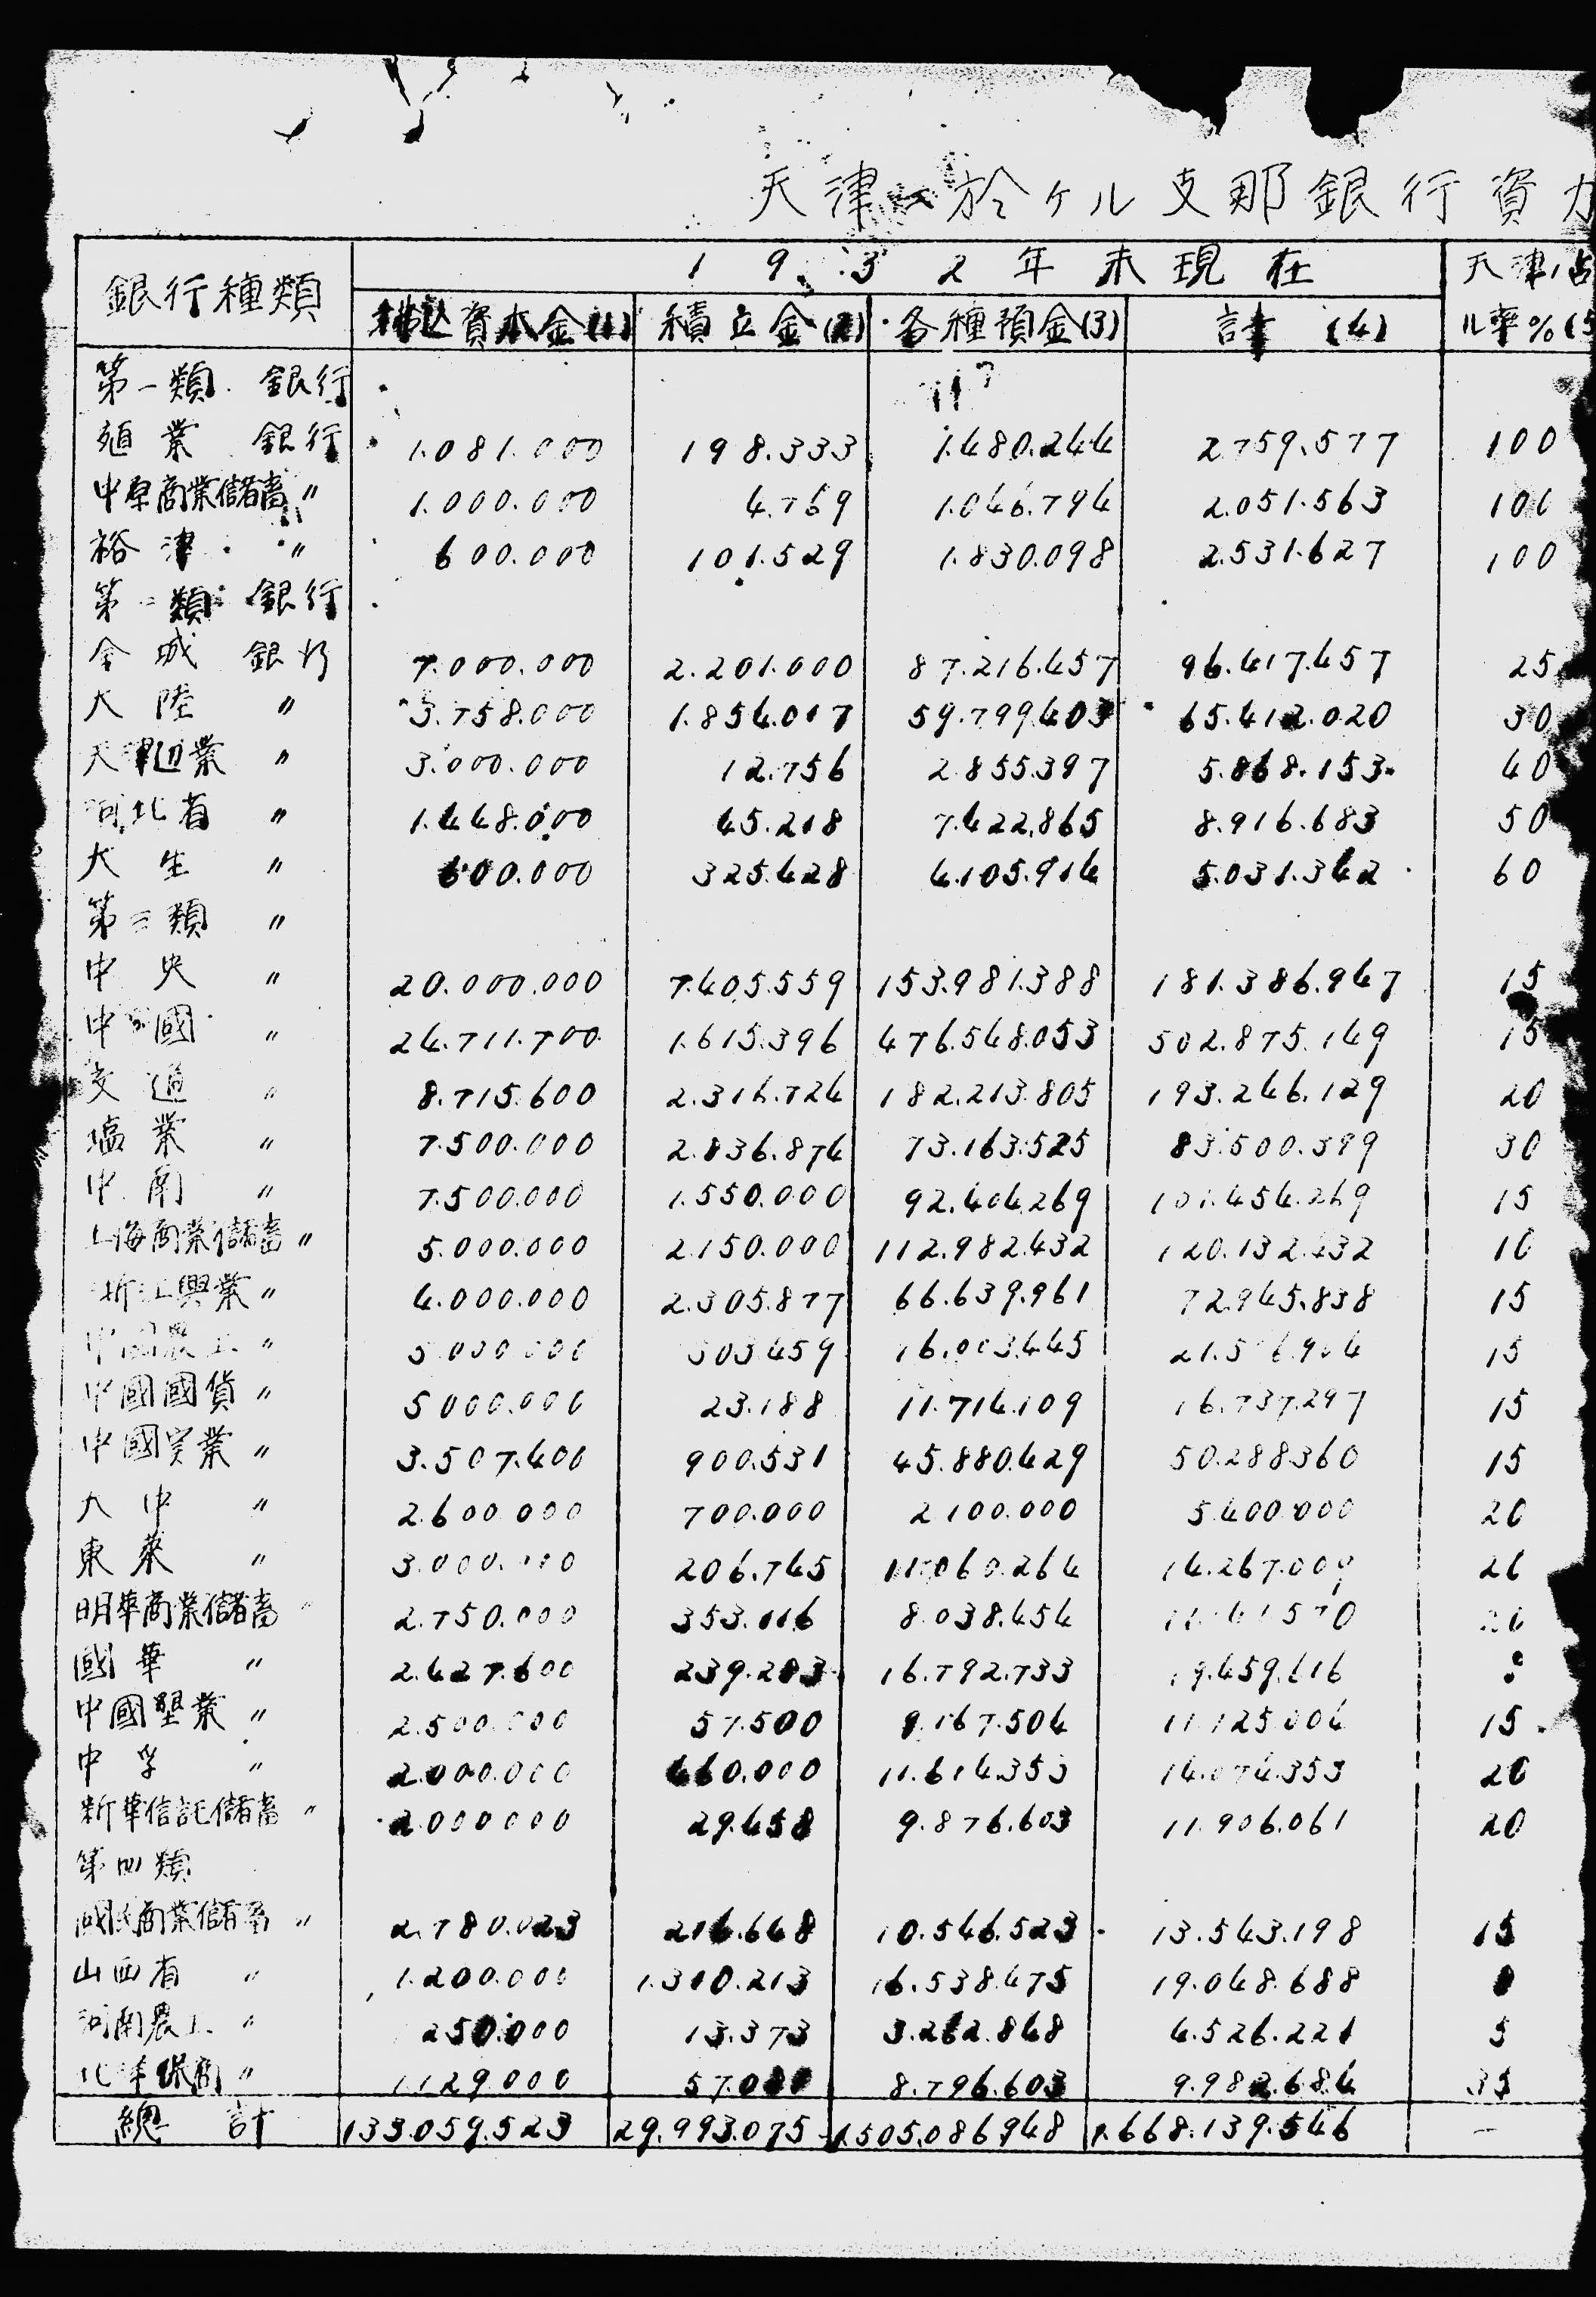 天津ニ於ケル支那銀行資力
銀行種類 1932年末現在 天津ノ占
拂込資本金(1) 積立金(2) 各種預金(3) 計(4) ル率%(5
第一類 銀行
殖業 銀行 1.081.000 198.333 1.480.244 2.759.577 100
中原商業儲蓄〃 1.000.000 4.769 1.046.794 2.051.563 100
裕津〃 600.000 101.529 1.830.098 2.531.627 100
第二類 銀行
金城 銀行 7.000.000 2.201.000 87.216.457 96.417.457 25
大陸〃 3.758.000 1.854.017 59.799.403 65.412.020 30
天津边業〃 3.000.000 12.756 2.855.397 5.868.153 40
河北省〃 1.448.000 45.218 7.422.865 8.916.683 50
大生〃 600.000 325.428 4.105.914 5.031.342 60
第三類〃
中央〃 20.000.000 7.405.559 153.981.388 181.386.947 15
中國〃 24.711.700 1.615.396 476.548.053 502.875.149 15
交通〃 8.715.600 2.316.724 182.213.805 193.246.129 20
塩業〃 7.500.000 2.836.874 73.163.525 83.500.399 30
中南〃 7.500.000 1.550.000 92.404.269 101.454.269 15
上海商業儲蓄〃 5.000.000 2.150.000 112.982.432 120.132.432 10
浙江興業〃 4.000.000 2.305.877 66.639.961 72.945.838 15
中國農工〃 5.000.000 503.459 16.003.445 21.506.904 15
中國國貨〃 5.000.000 23.188 11.714.109 16.737.297 15
中國実業〃 3.507.400 900.531 45.880.429 50.288.360 15
大中〃 2.600.000 700.000 2.100.000 5.400.000 20
東萊〃 3.000.000 206.745 11.060.264 14.267.009 20
明華商業儲蓄〃 2.750.000 353.116 8.038.454 11.141.570 20
國華〃 2.427.600 239.283 16.792.733 19.459.616
中國墾業〃 2.500.000 57.500 9.167.504 11.725.004 15
中孚〃 2.000.000 460.000 11.614.353 14.074.353 20
新華信託儲蓄〃 2.000.000 29.458 9.876.603 11.906.061 20
第四類
國民商業儲蓄〃 2.780.023 216.648 10.546.523 13.543.198 15
山西省〃 1.200.000 1.310.213 16.538.475 19.048.688
河南農工〃 250.000 13.373 3.262.848 4.526.221 5
北洋保商〃 1.129.000 57.081 8.796.603 9.982.684 35
總計 133.059.523 29.993.075 1.505.086.948 1.668.139.546 —